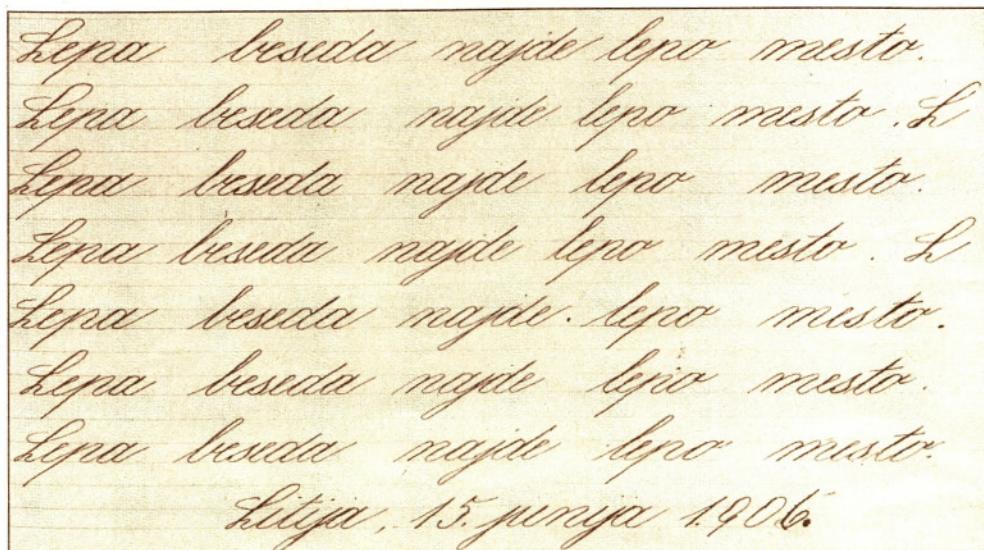 Lepa beseda najde lepo mesto.
Lepa beseda najde lepo mesto. L
Lepa beseda najde lepo mesto.
Lepa beseda najde lepo mesto. L
Lepa beseda najde. lepo mesto.
Lepa beseda najde lepo mesto.
Lepa beseda najde lepo mesto.
Litija, 15. junija 1906.